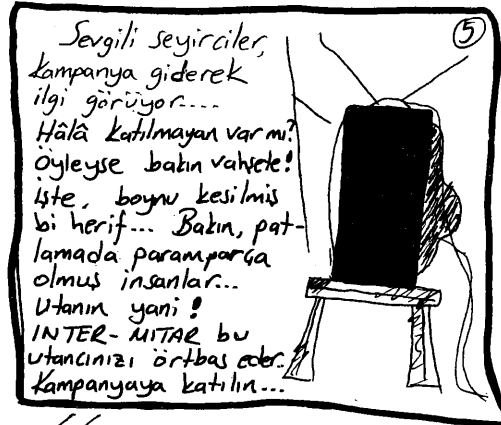 5
Sevgili seyirciler,
Kampanya giderek
ilgi görüyor....
Hâlâ katılmayan var mı?
Öyleyse bakın vahşete!
İşte, boynu kesilmiş
bi herif... Bakın, pat-
lamada paramparça
olmuş insanlar...
Utanın yani!
INTER-MITAR bu
utancınızı örtbas eder..
Kampanyaya katılın...